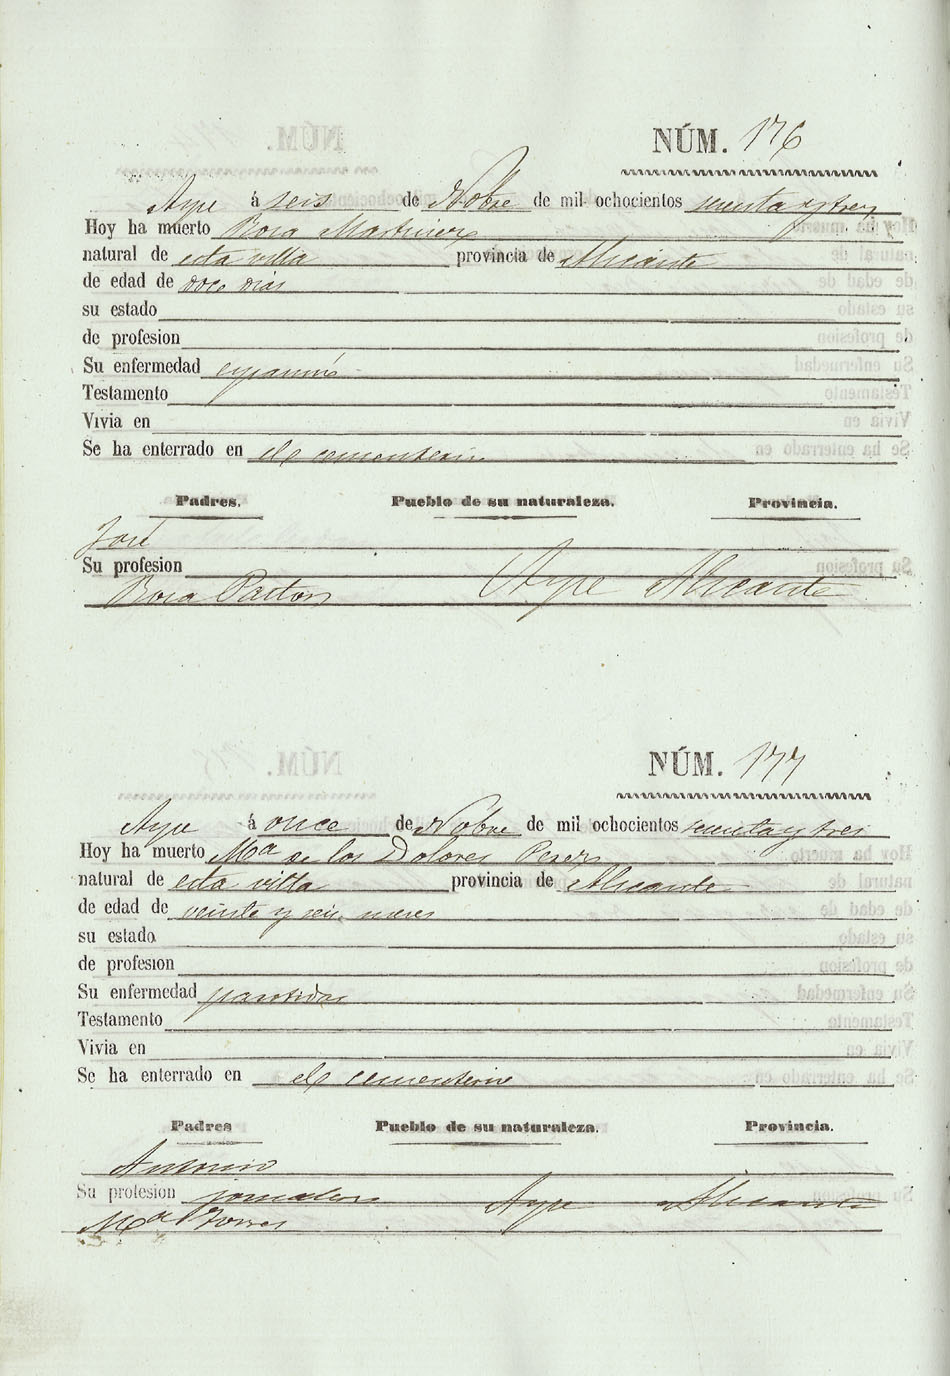 NÚM. 176
Aspe á seis de Nobre de mil ochocientos sesenta y tres
Hoy ha muerto Rosa Martinez
natural de esta villa provincia de Alicante
de edad de doce dias
su estado
de profesion
Su enfermedad
Testamento
Vivia en
Se ha enterrado en el cementerio
Padres. Pueblo de su naturaleza. Provincia.
José
Su profesion
Rosa Pastor Aspe Alicante
NÚM. 177
Aspe á once de Nobre de mil ochocientos sesenta y tres
Hoy ha muerto Mª de los Dolores Perez
natural de esta villa provincia de Alicante
de edad de veinte y seis meses
su estado
de profesion
Su enfermedad
Testamento
Vivia en
Se ha enterrado en el cementerio
Padres Pueblo de su naturaleza. Provincia.
Antonio
Su profesion jornalero Aspe Alicante
Mª